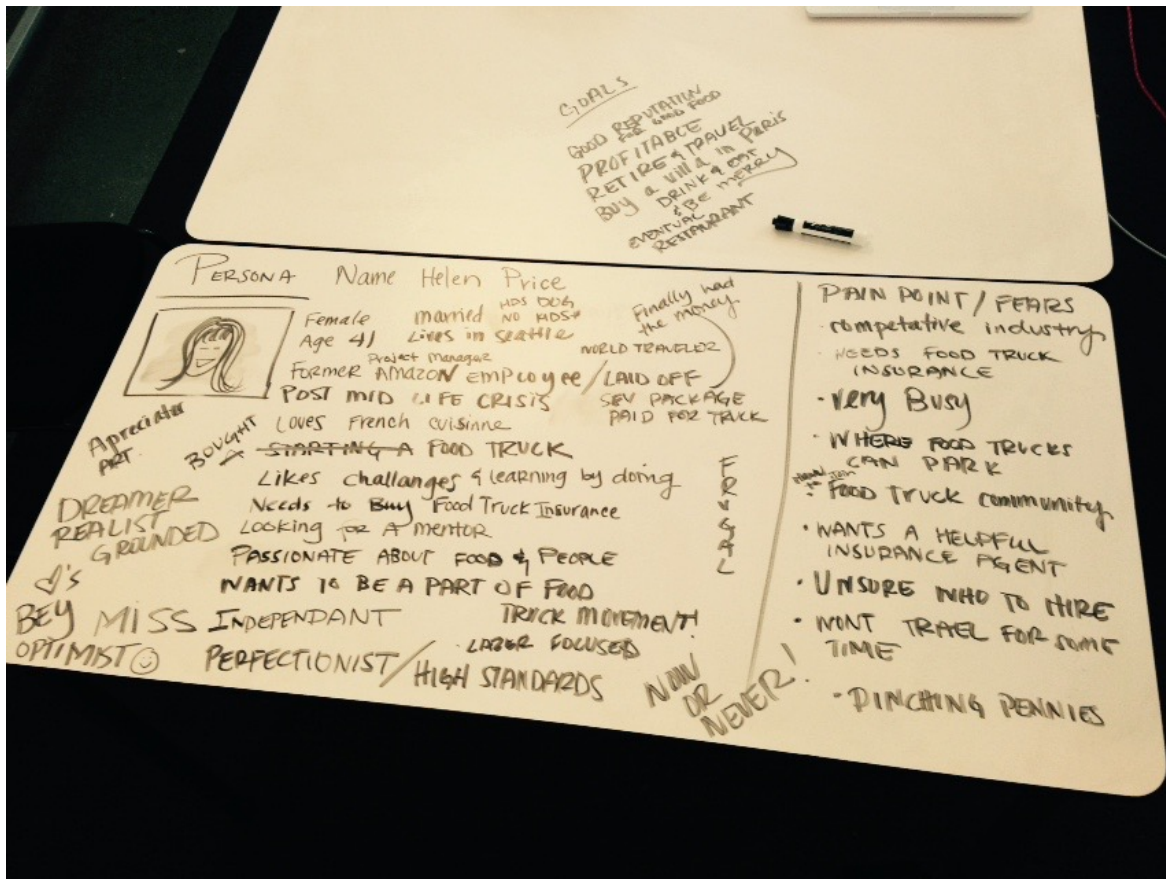 GOALS
GOOD REPUTATION
FOR GOOD FOOD
PROFITABLE
RETIRE & TRAVEL
BUY a villa in PARIS
DRINK & EAT
& BE MERRY
EVENTUAL
RESTAURANT
PERSONA Name Helen Price
Female married HAS DOG
NO KIDS
Age 41 Lives in Seattle
Finally had
the money
WORLD TRAVELER
Project Manager
Former AMAZON employee / LAID OFF
SEV PACKAGE
PAID FOR TRUCK
POST MID LIFE CRISIS
Loves French cuisinne
Apreciater
ART
BOUGHT
A STARTING A FOOD TRUCK
Likes challanges & learning by doing
FRUGAL
DREAMER
REALIST
GROUNDED
Needs to Buy Food Truck Insurance
Looking FOR A mentor
PASSIONATE ABOUT FOOD & PEOPLE
WANTS TO BE A PART OF FOOD
TRUCK MOVEMENT!
♡'s
BEY MISS INDEPENDANT
OPTIMIST ☺
LAZER FOCUSED
PERFECTIONIST / HIGH STANDARDS
NOW
OR
NEVER!
PAIN POINT / FEARS
· competative industry
· NEEDS FOOD TRUCK
INSURANCE
· Very Busy
· WHERE FOOD TRUCKS
CAN PARK
· HOW to Join
FOOD TRUCK community
· WANTS A HELPFUL
INSURANCE AGENT
· UNSURE WHO TO HIRE
· WONT TRAVEL FOR SOME
TIME
· PINCHING PENNIES